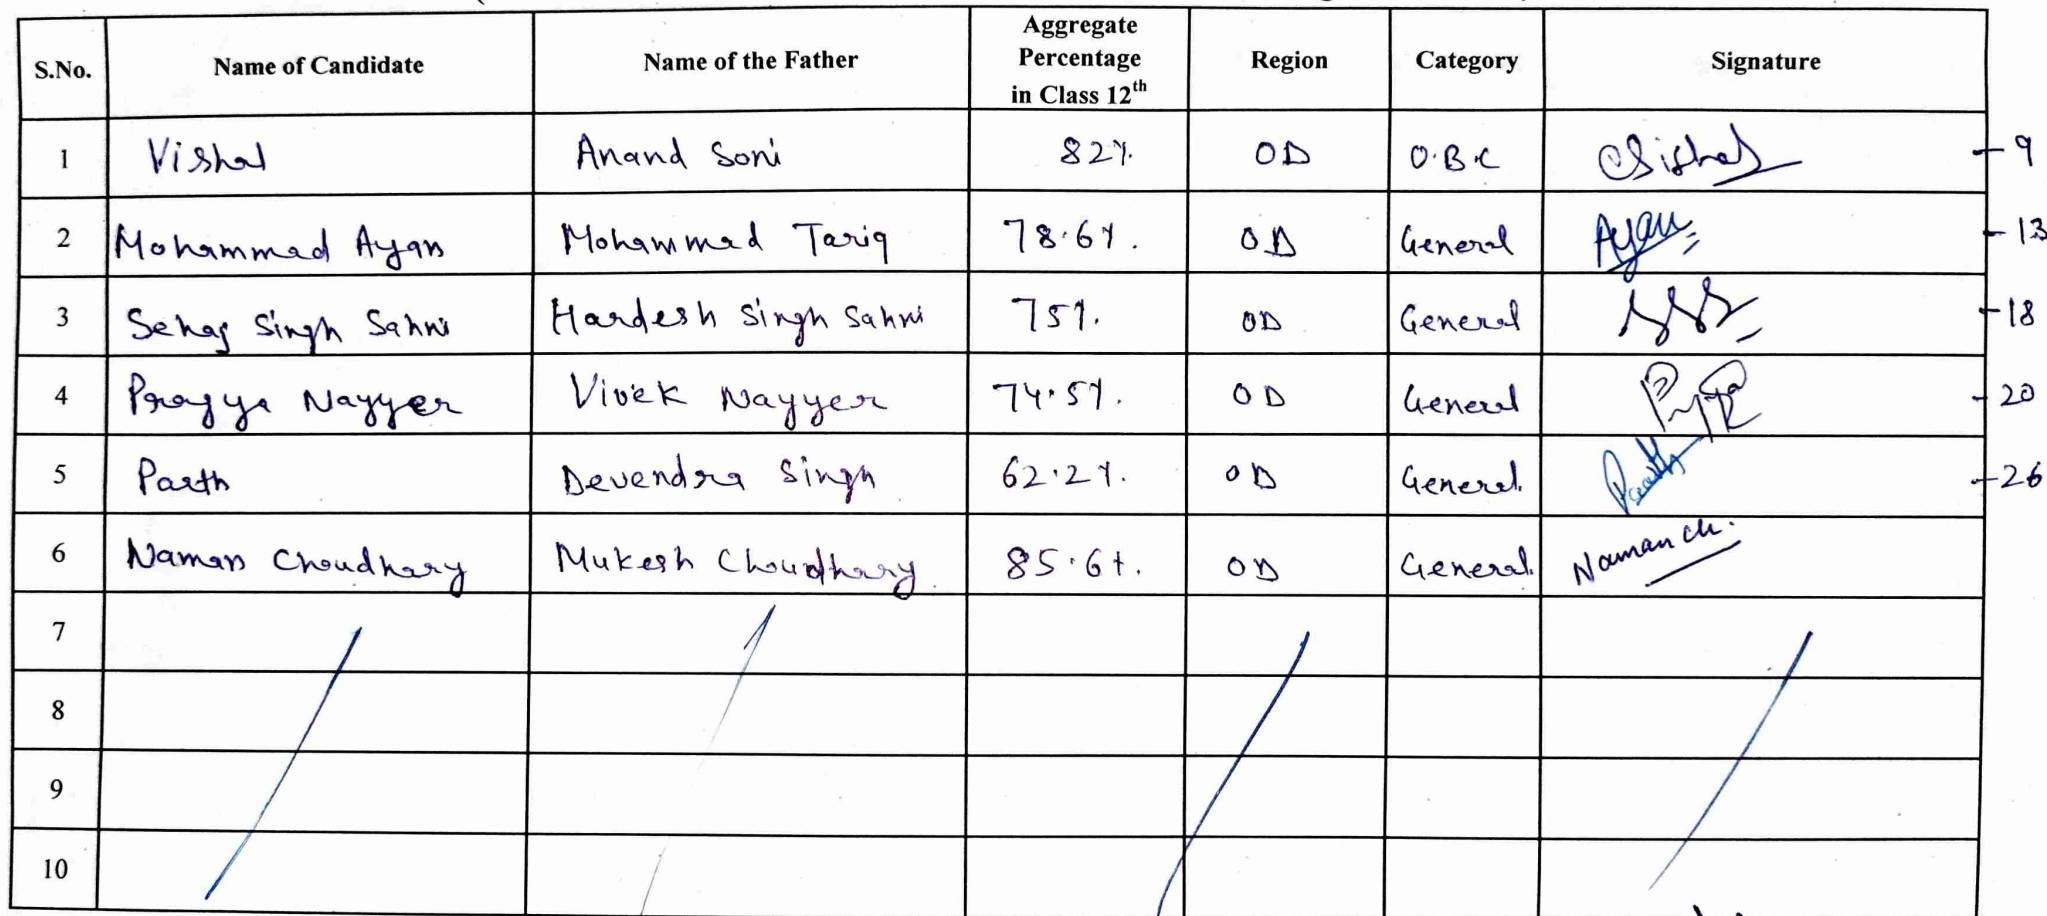 S.No. Name of Candidate Name of the Father Aggregate Percentage in Class 12th Region Category Signature
1 Vishal Anand Soni 82% OD O.B.C Vishal - 9
2 Mohammad Ayan Mohammad Tariq 78.6%. OD General Ayan - 13
3 Sehaj Singh Sahni Hardesh Singh Sahni 75%. OD General SSS - 18
4 Pragya Nayyer Vivek Nayyer 74.5%. OD General - 20
5 Parth Devendra Singh 62.2%. OD General. Parth - 26
6 Naman Choudhary Mukesh Choudhary. 85.6%. OD General. Naman Ch.
7
8
9
10